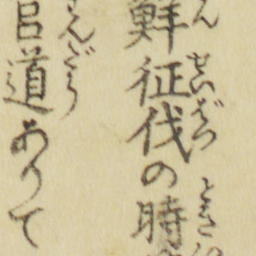 鮮征伐の時
官道ありて